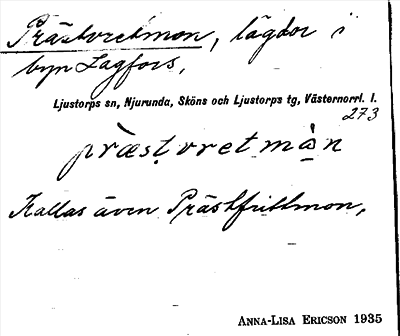 Prästvretmon, lägdor i
byn Lagfors,
Ljustorps sn, Njurunda, Sköns och Ljustorps tg, Västernorrl. l.
273
præst vret mån
Kallas även Prästfrittmon,
ANNA-LISA ERICSON 1935